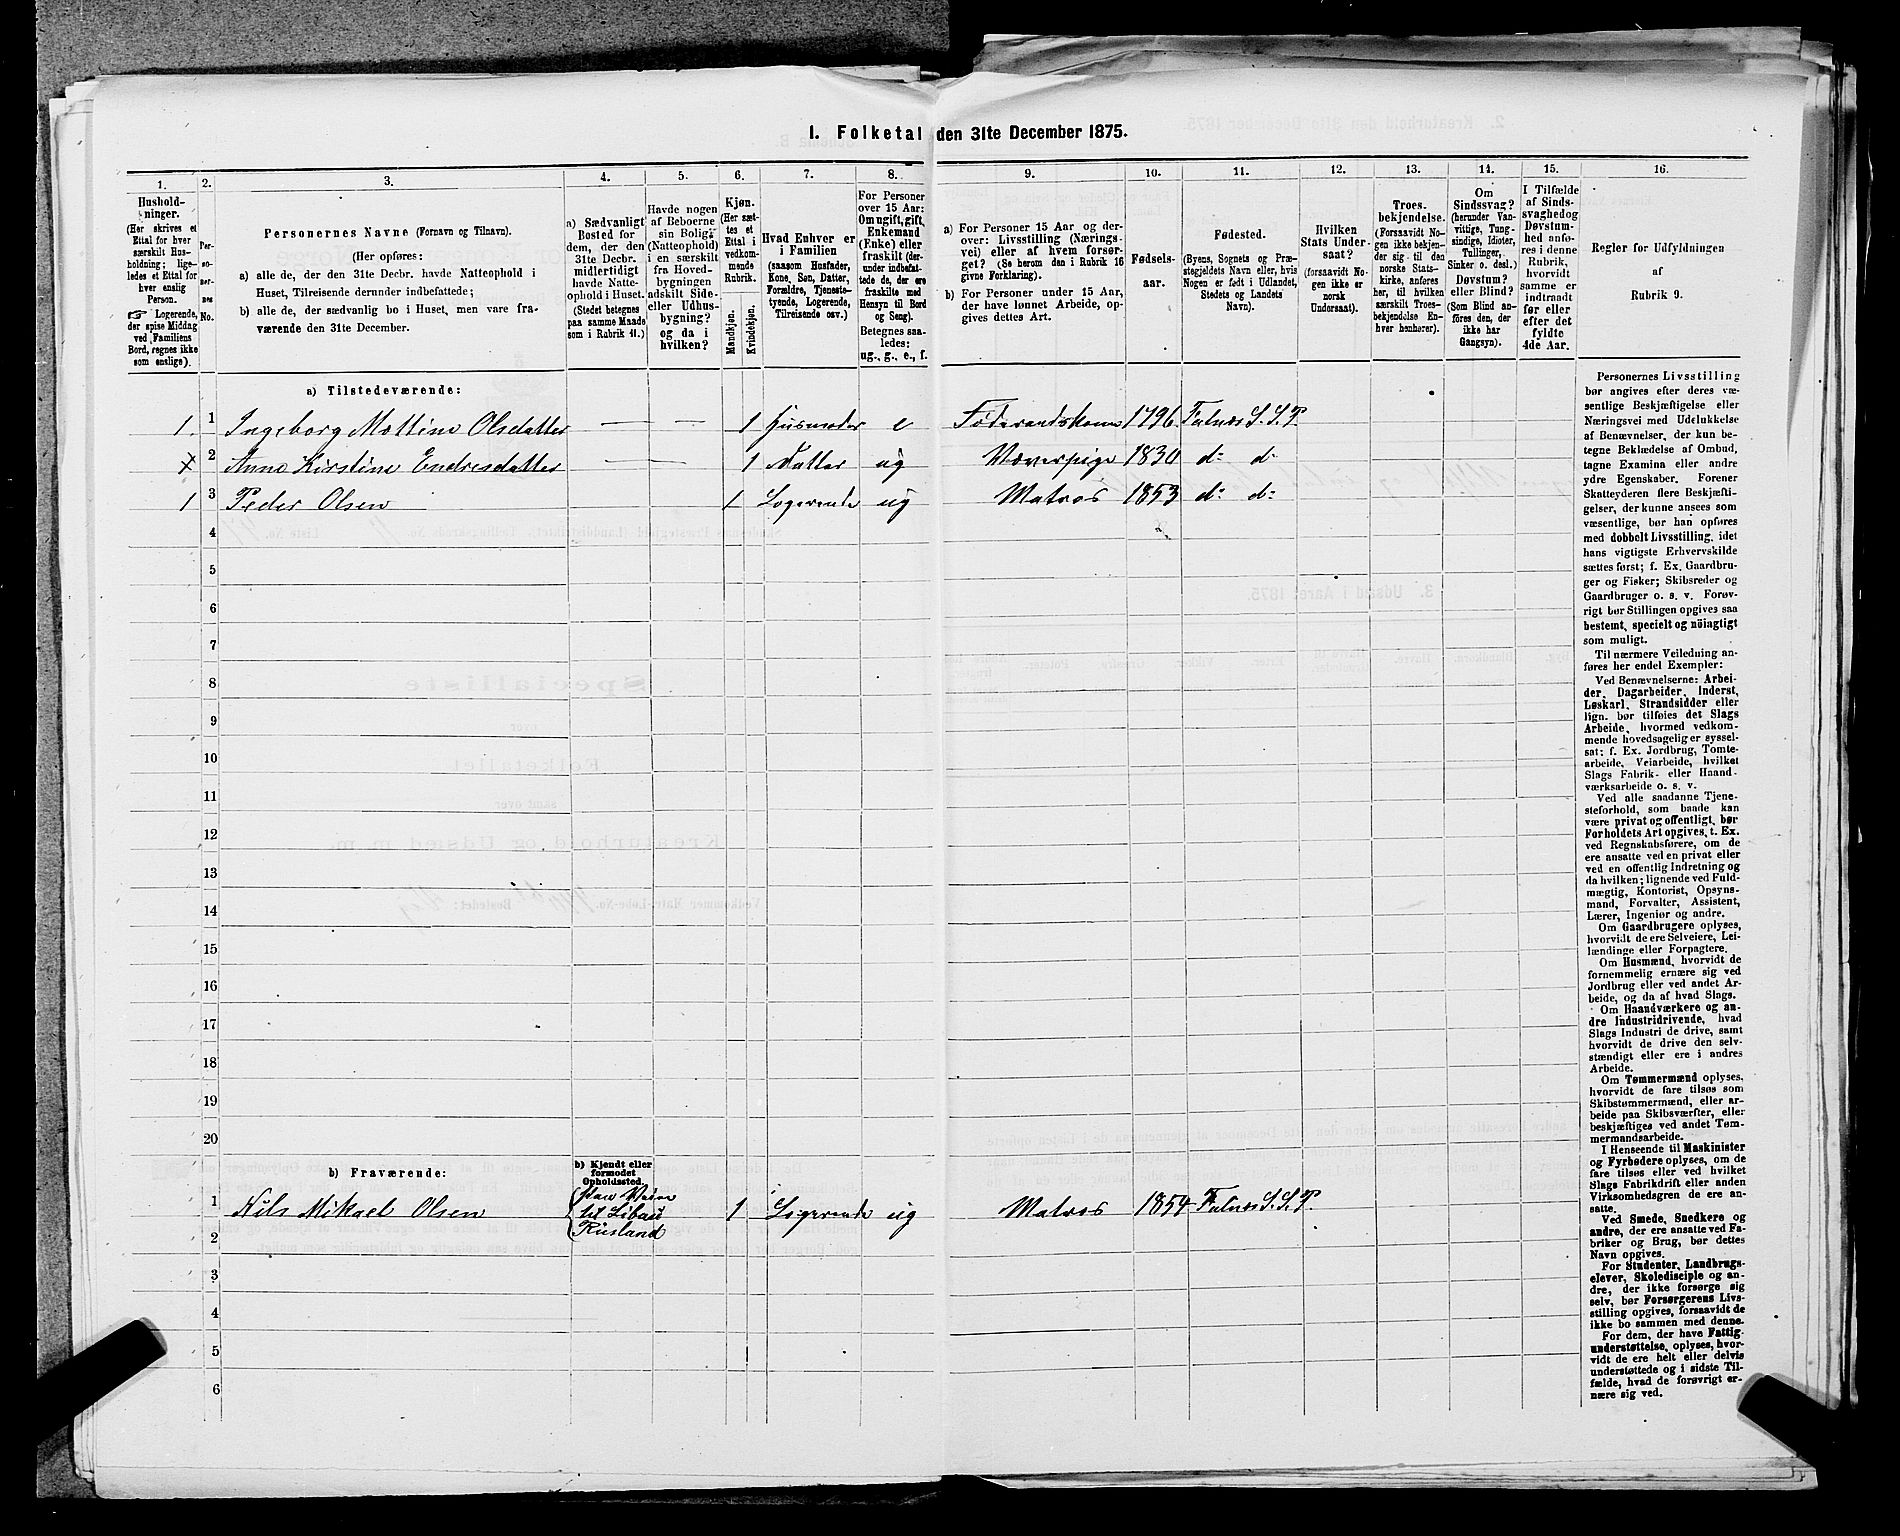 1. Folketal den 31te December 1875.
1. 2. 3. 4. 5. 6. 7. 8. 9. 10. 11. 12. 13. 14. 15. 16.
Hushold-
ninger.
(Her skrives et
Ettal for hver
særskilt Hus-
holdning; lige-
ledes et Ettal for
hver enslig
Person.
☞ Logerende,
der spise Middag
ved Familiens
Bord, regnes ikke
som enslige).
Per-
so-
ner-
nes
No.
Personernes Navne (Fornavn og Tilnavn).
(Her opføres:
a) alle de, der den 31te Decbr. havde Natteophold i
Huset, Tilreisende derunder indbefattede;
b) alle de, der sædvanlig bo i Huset, men vare fra-
værende den 31te December.
a) Sædvanligt
Bosted for
dem, der den
31te Decbr.
midlertidigt
havde Natte-
ophold i Huset.
(Stedet betegnes
paa samme Maade
som i Rubrik 11.)
Havde nogen
af Beboerne
sin Bolig
(Natteophold)
i en særskilt
fra Hoved-
bygningen
adskilt Side-
eller Udhus-
bygning?
og da i
hvilken?
Kjøn.
(Her sæt-
tes et
Ettal i
vedkom-
mende
Rubrik.
Mandkjøn.
Kvindekjøn.
Hvad Enhver er
i Familien
(saasom Husfader,
Kone, Søn, Datter,
Forældre, Tjeneste-
tyende, Logerende,
Tilreisende osv.)
For Personer
over 15 Aar:
Om ugift, gift,
Enkemand
(Enke) eller
fraskilt (der-
under indbefat-
tede de, der ere
fraskilte med
Hensyn til Bord
og Seng).
Betegnes saa-
ledes:
ug., g., e., f.
a) For Personer 15 Aar og der-
over: Livsstilling (Nærings-
vei) eller af hvem forsør-
get? (Se herom den i Rubrik 16
givne Forklaring).
b) For Personer under 15 Aar,
der have lønnet Arbeide, op-
gives dettes Art.
Fødsels-
aar.
Fødested.
(Byens, Sognets og Præ-
stegjeldets Navn eller, hvis
Nogen er født i Udlandet,
Stedets og Landets
Navn).
Hvilken
Stats Under-
saat?
(forsaavidt No-
gen ikke er
norsk
Undersaat).
Troes-
bekjendelse.
(Forsaavidt No-
gen ikke bekjen-
der sig til den
norske Stats-
kirke, anføres
her, til hvilken
særskilt Troes-
bekjendelse En-
hver henhører).
Om
Sindssvag?
(herunder Van-
vittige, Tung-
sindige, Idioter,
Tullinger,
Sinker o. desl.)
Døvstum?
eller Blind?
(Som Blind an-
føres den, der
ikke har
Gangsyn).
I Tilfælde
af Sinds-
svaghed og
Døvstum-
hed anfø-
res i denne
Rubrik,
hvorvidt
samme er
indtraadt
før eller
efter det
fyldte
4de Aar.
Regler for Udfyldningen
af
Rubrik 9.
a) Tilstedeværende:
1. 1 Ingeborg Mattine Olsdatter — — 1 Husmoder e Föderaadskone 1796 Falnæs S. S. P.
2 Anna Kirstine Endresdatter — — 1 Datter ug Væverpige 1830 do do
1 3 Peder Olsen 1 Logerende ug Matros 1853 do do
4
5
6
7
8
9
10
11
12
13
14
15
16
17
18
19
20
b) Fraværende:
b) Kjendt eller
formodet
Opholdssted.
1 Nils Mikael Olsen
til Libau
Rusland
1 Logerende ug Matros 1854 Falnæs S. S. P.
2
3
4
5
6
Personernes Livsstilling
bør angives efter deres væ-
sentlige Beskjæftigelse eller
Næringsvei med Udelukkelse
af Benævnelser, der kun be-
tegne Beklædelse af Ombud,
tagne Examina eller andre
ydre Egenskaber. Forener
Skatteyderen flere Beskjæfti-
gelser, der kunne ansees som
væsentlige, bør han opføres
med dobbelt Livsstilling, idet
hans vigtigste Erhvervskilde
sættes først; f. Ex. Gaardbru-
ger og Fisker; Skibsreder og
Gaardbruger o. s. v. Forøv-
rigt bør Stillingen opgives saa
bestemt, specielt og nöiagtigt
som muligt.
Til nærmere Veiledning an-
føres her endel Exempler:
Ved Benævnelserne: Arbei-
der, Dagarbeider, Inderst,
Løskarl, Strandsidder eller
lign. bør tilføies det Slags
Arbeide, hvormed vedkom-
mende hovedsagelig er syssel-
sat; f. Ex. Jordbrug, Tomte-
arbeide, Veiarbeide, hvilket
Slags Fabrik- eller Haand-
værksarbeide o. s. v.
Ved alle saadanne Tjene-
steforhold, som baade kan
være privat og offentligt, bør
Forholdets Art opgives, t. Ex.
ved Regnskabsførere, om de
ere ansatte ved en privat eller
ved en offentlig Indretning og
da hvilken; lignende ved Fuld-
mægtig, Kontorist, Opsyns-
mand, Forvalter, Assistent,
Lærer, Ingeniør og andre.
Om Gaardbrugere oplyses,
hvorvidt de ere Selveiere, Lei-
lændinge eller Forpagtere.
Om Husmænd, hvorvidt de
fornemmelig ernære sig ved
Jordbrug eller ved andet Ar-
beide, og da af hvad Slags.
Om Haandværkere og an-
dre Industridrivende, hvad
Slags Industri de drive, samt
hvorvidt de drive den selv-
stændigt eller ere i andres
Arbeide.
Om Tømmermænd oplyses,
hvorvidt de fare tilsøs som
Skibstømmermænd, eller ar-
beide paa Skibsværfter, eller
beskjæftiges ved andet Tøm-
mermandsarbeide.
I Henseende til Maskinister
og Fyrbødere oplyses, om de
fare tilsøs eller ved hvilket
Slags Fabrikdrift eller anden
Virksomhedsgren de ere an-
satte.
Ved Smede, Snedkere og
andre, der ere ansatte ved Fa-
briker og Brug, bør dettes
Navn opgives.
For Studenter, Landbrugs-
elever, Skoledisciple og an-
dre, der ikke forsørge sig
selv, bør Forsørgerens Livs-
stilling opgives, forsaavidt de
ikke bo sammen med denne.
For dem, der have Fattig-
understøttelse, oplyses, hvor-
vidt de ere helt eller delvis
understøttede og i sidste Til-
fælde, hvad de forøvrigt er-
nære sig ved.